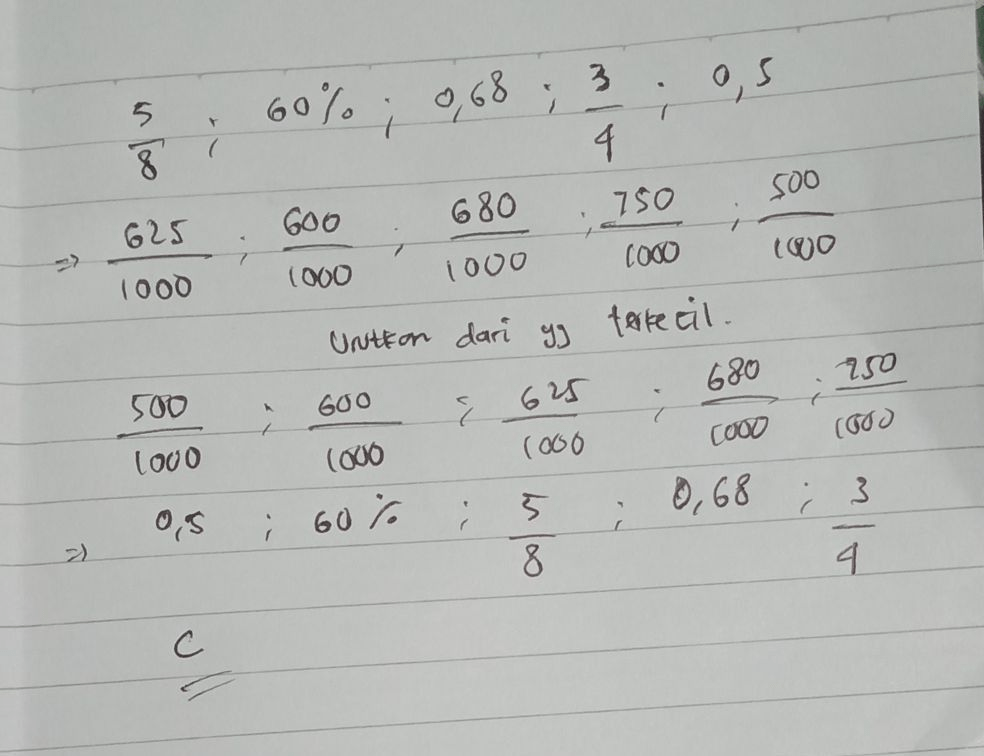 5/8 ; 60% ; 0,68 ; 3/4 ; 0,5
=> 625/1000 ; 600/1000 ; 680/1000 ; 750/1000 ; 500/1000
Urutkan dari yg terkecil.
500/1000 ; 600/1000 ; 625/1000 ; 680/1000 ; 750/1000
=> 0,5 ; 60% ; 5/8 ; 0,68 ; 3/4
C